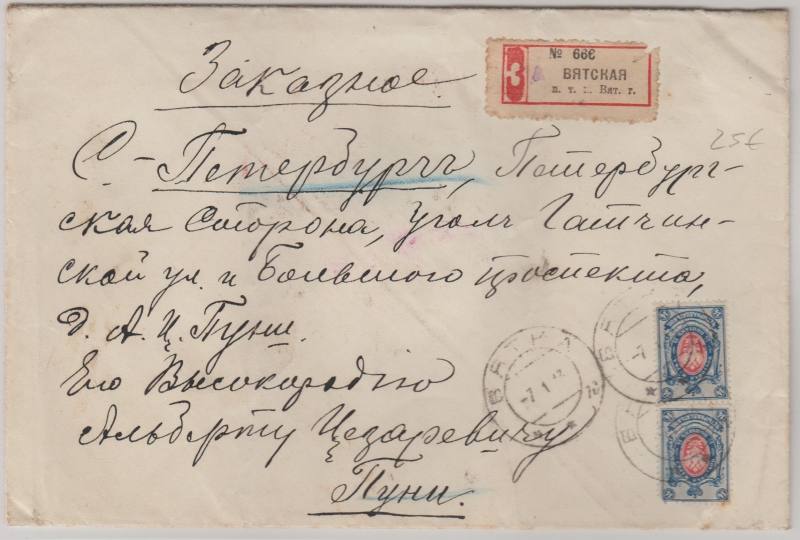 Заказное.
№ 666
З
ВЯТСКАЯ
п. т. к. Вят. г.
25€
С-Петербургъ, Петербург-
ская Сторона, уголъ Гатчин-
ской ул. и Большого проспекта,
д. А. Ц. Пуни.
Его Высокородію
Альберту Цезаревичу
Пуни.
ВЯТКА
-7.1.12